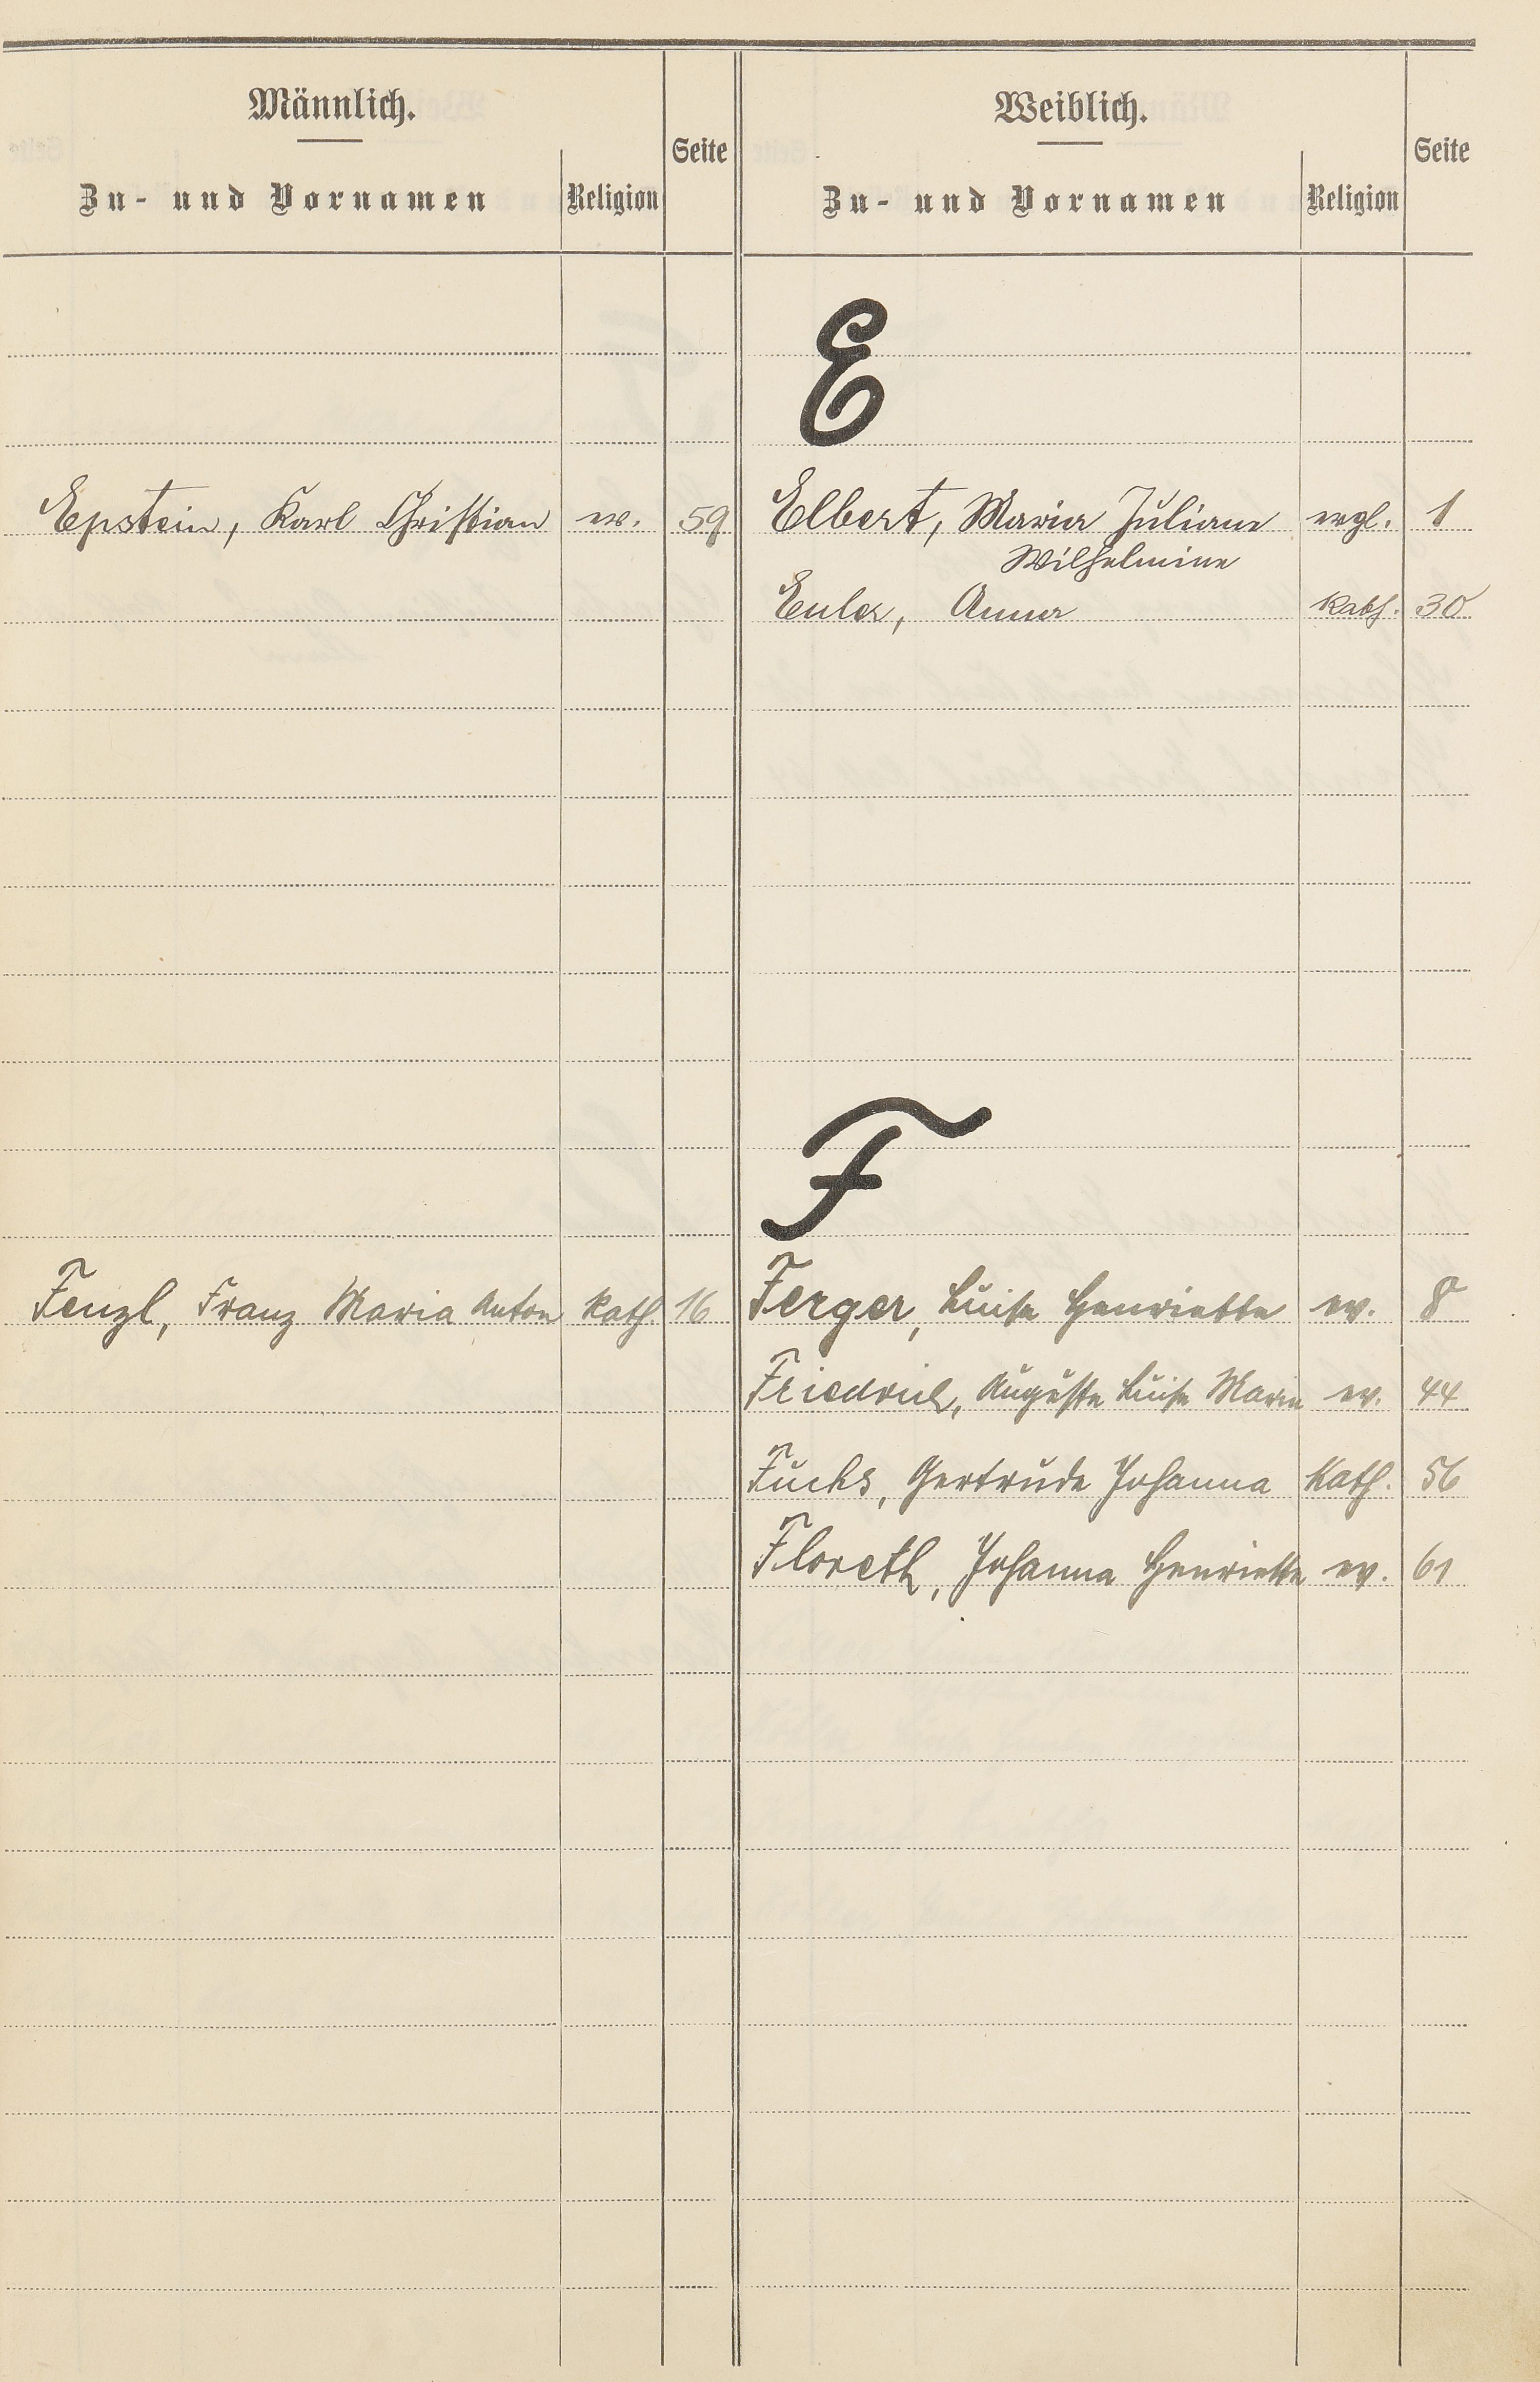 Männlich.
Zu- und Vornamen Religion Seite
Weiblich.
Zu- und Vornamen Religion Seite
E
Epstein, Karl Christian ev. 59
Elbert, Maria Juliane evgl. 1
Wilhelmine
Euler, Anna Kath. 30
F
Fenzl, Franz Maria Anton Kath. 16
Ferger, Luise Henriette ev. 8
Friedrich, Auguste Luise Marie ev. 44
Fuchs, Gertrude Johanna Kath. 56
Floreth, Johanna Henriette ev. 61